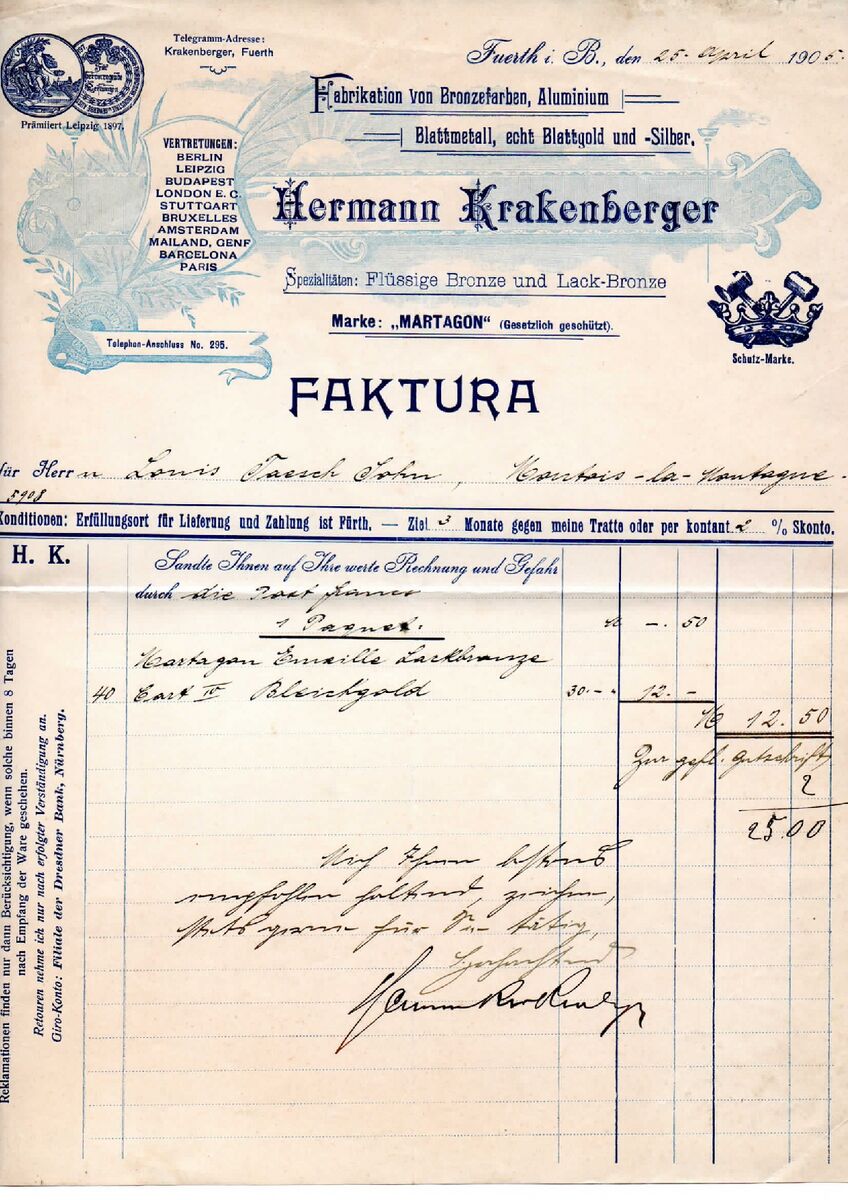 Telegramm-Adresse:
Krakenberger, Fuerth
Prämiiert Leipzig 1897.
Fuerth i. B., den 25. April 1905.
Fabrikation von Bronzefarben, Aluminium
Blattmetall, echt Blattgold und -Silber.
VERTRETUNGEN:
BERLIN
LEIPZIG
BUDAPEST
LONDON E. C.
STUTTGART
BRUXELLES
AMSTERDAM
MAILAND, GENF
BARCELONA
PARIS
Hermann Krakenberger
Spezialitäten: Flüssige Bronze und Lack-Bronze
Marke: „MARTAGON“ (Gesetzlich geschützt).
Telephon-Anschluss No. 295.
Schutz-Marke.
FAKTURA
für Herrn Louis Taesch Sohn, Montois-la-Montagne.
5908
Konditionen: Erfüllungsort für Lieferung und Zahlung ist Fürth. — Ziel 3 Monate gegen meine Tratte oder per kontant 2 % Skonto.
H. K.
Sandte Ihnen auf Ihre werte Rechnung und Gefahr
durch die Post franco
1 Paquet: M -. 50
Martagon Emaille Lackbronze
40 Cart IV Bleichgold 30.- " 12. -
M 12. 50
Zur gefl. Gutschrift
2
25.00
Mich Ihnen bestens
empfohlen haltend, zeichne,
stets gerne für Sie tätig,
Hochachtend
Hermann Krakenberger
Reklamationen finden nur dann Berücksichtigung, wenn solche binnen 8 Tagen
nach Empfang der Ware geschehen.
Retouren nehme ich nur nach erfolgter Verständigung an.
Giro-Konto: Filiale der Dresdner Bank, Nürnberg.